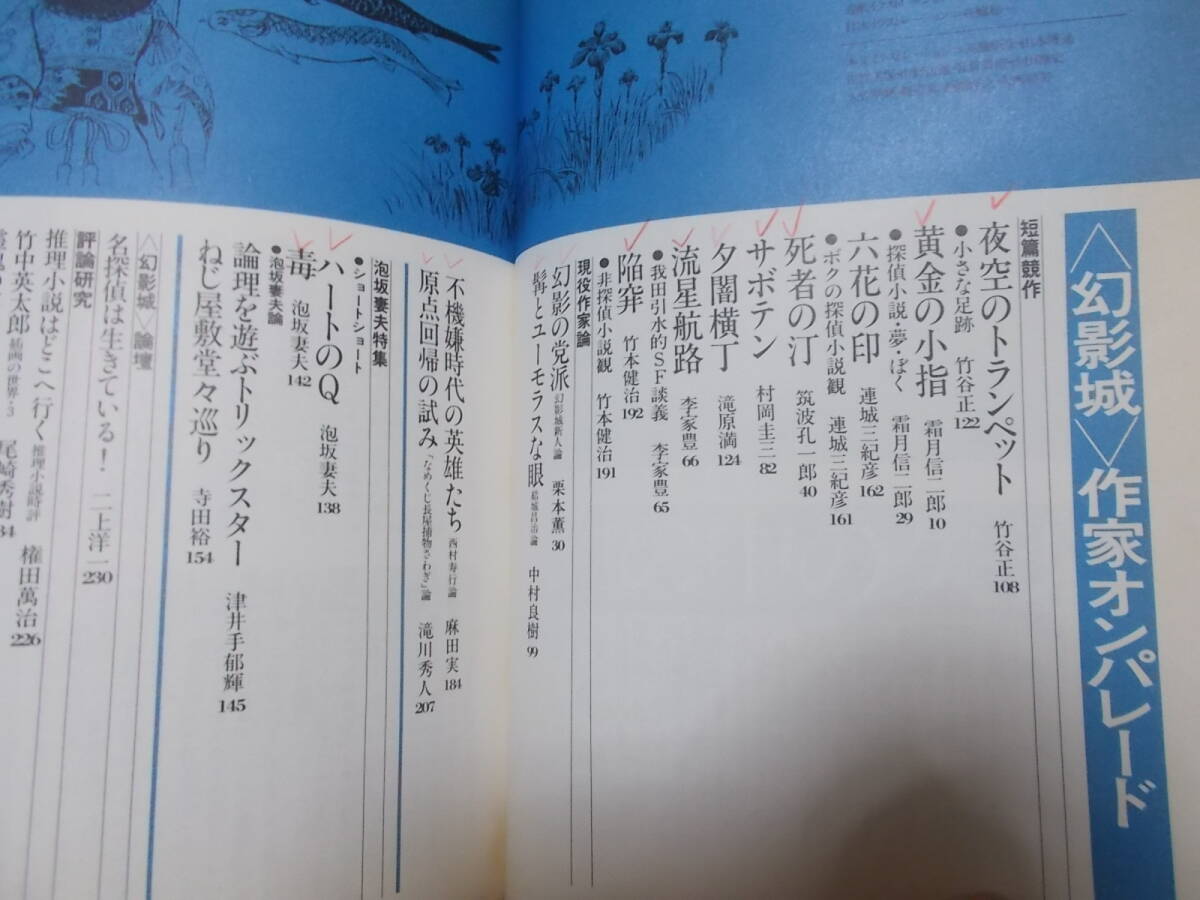 〈幻影城〉作家オンパレード
短篇競作
夜空のトランペット 竹谷正 108
●小さな足跡 竹谷正 122
黄金の小指 霜月信二郎 10
●探偵小説・夢・ぼく 霜月信二郎 29
六花の印 連城三紀彦 162
●ボクの探偵小説観 連城三紀彦 161
死者の汀 筑波孔一郎 40
サボテン 村岡圭三 82
夕闇横丁 滝原満 124
流星航路 李家豊 66
●我田引水的SF談義 李家豊 65
陥穽 竹本健治 192
●非探偵小説観 竹本健治 191
現役作家論
幻影の党派 幻影城新人論 栗本薫 30
髯とユーモラスな眼 結城昌治論 中村良樹 99
不機嫌時代の英雄たち 西村寿行論 麻田実 184
原点回帰の試み 「なめくじ長屋捕物さわぎ」論 滝川秀人 207
泡坂妻夫特集
●ショートショート
ハートのQ 泡坂妻夫 138
毒 泡坂妻夫 142
●泡坂妻夫論
論理を遊ぶトリックスター 津井手郁輝 145
ねじ屋敷堂々巡り 寺田裕 154
〈幻影城〉論壇
名探偵は生きている! 二上洋一 230
評論研究
推理小説はどこへ行く 推理小説時評 権田萬治 226
竹中英太郎 挿画の世界・3 尾崎秀樹